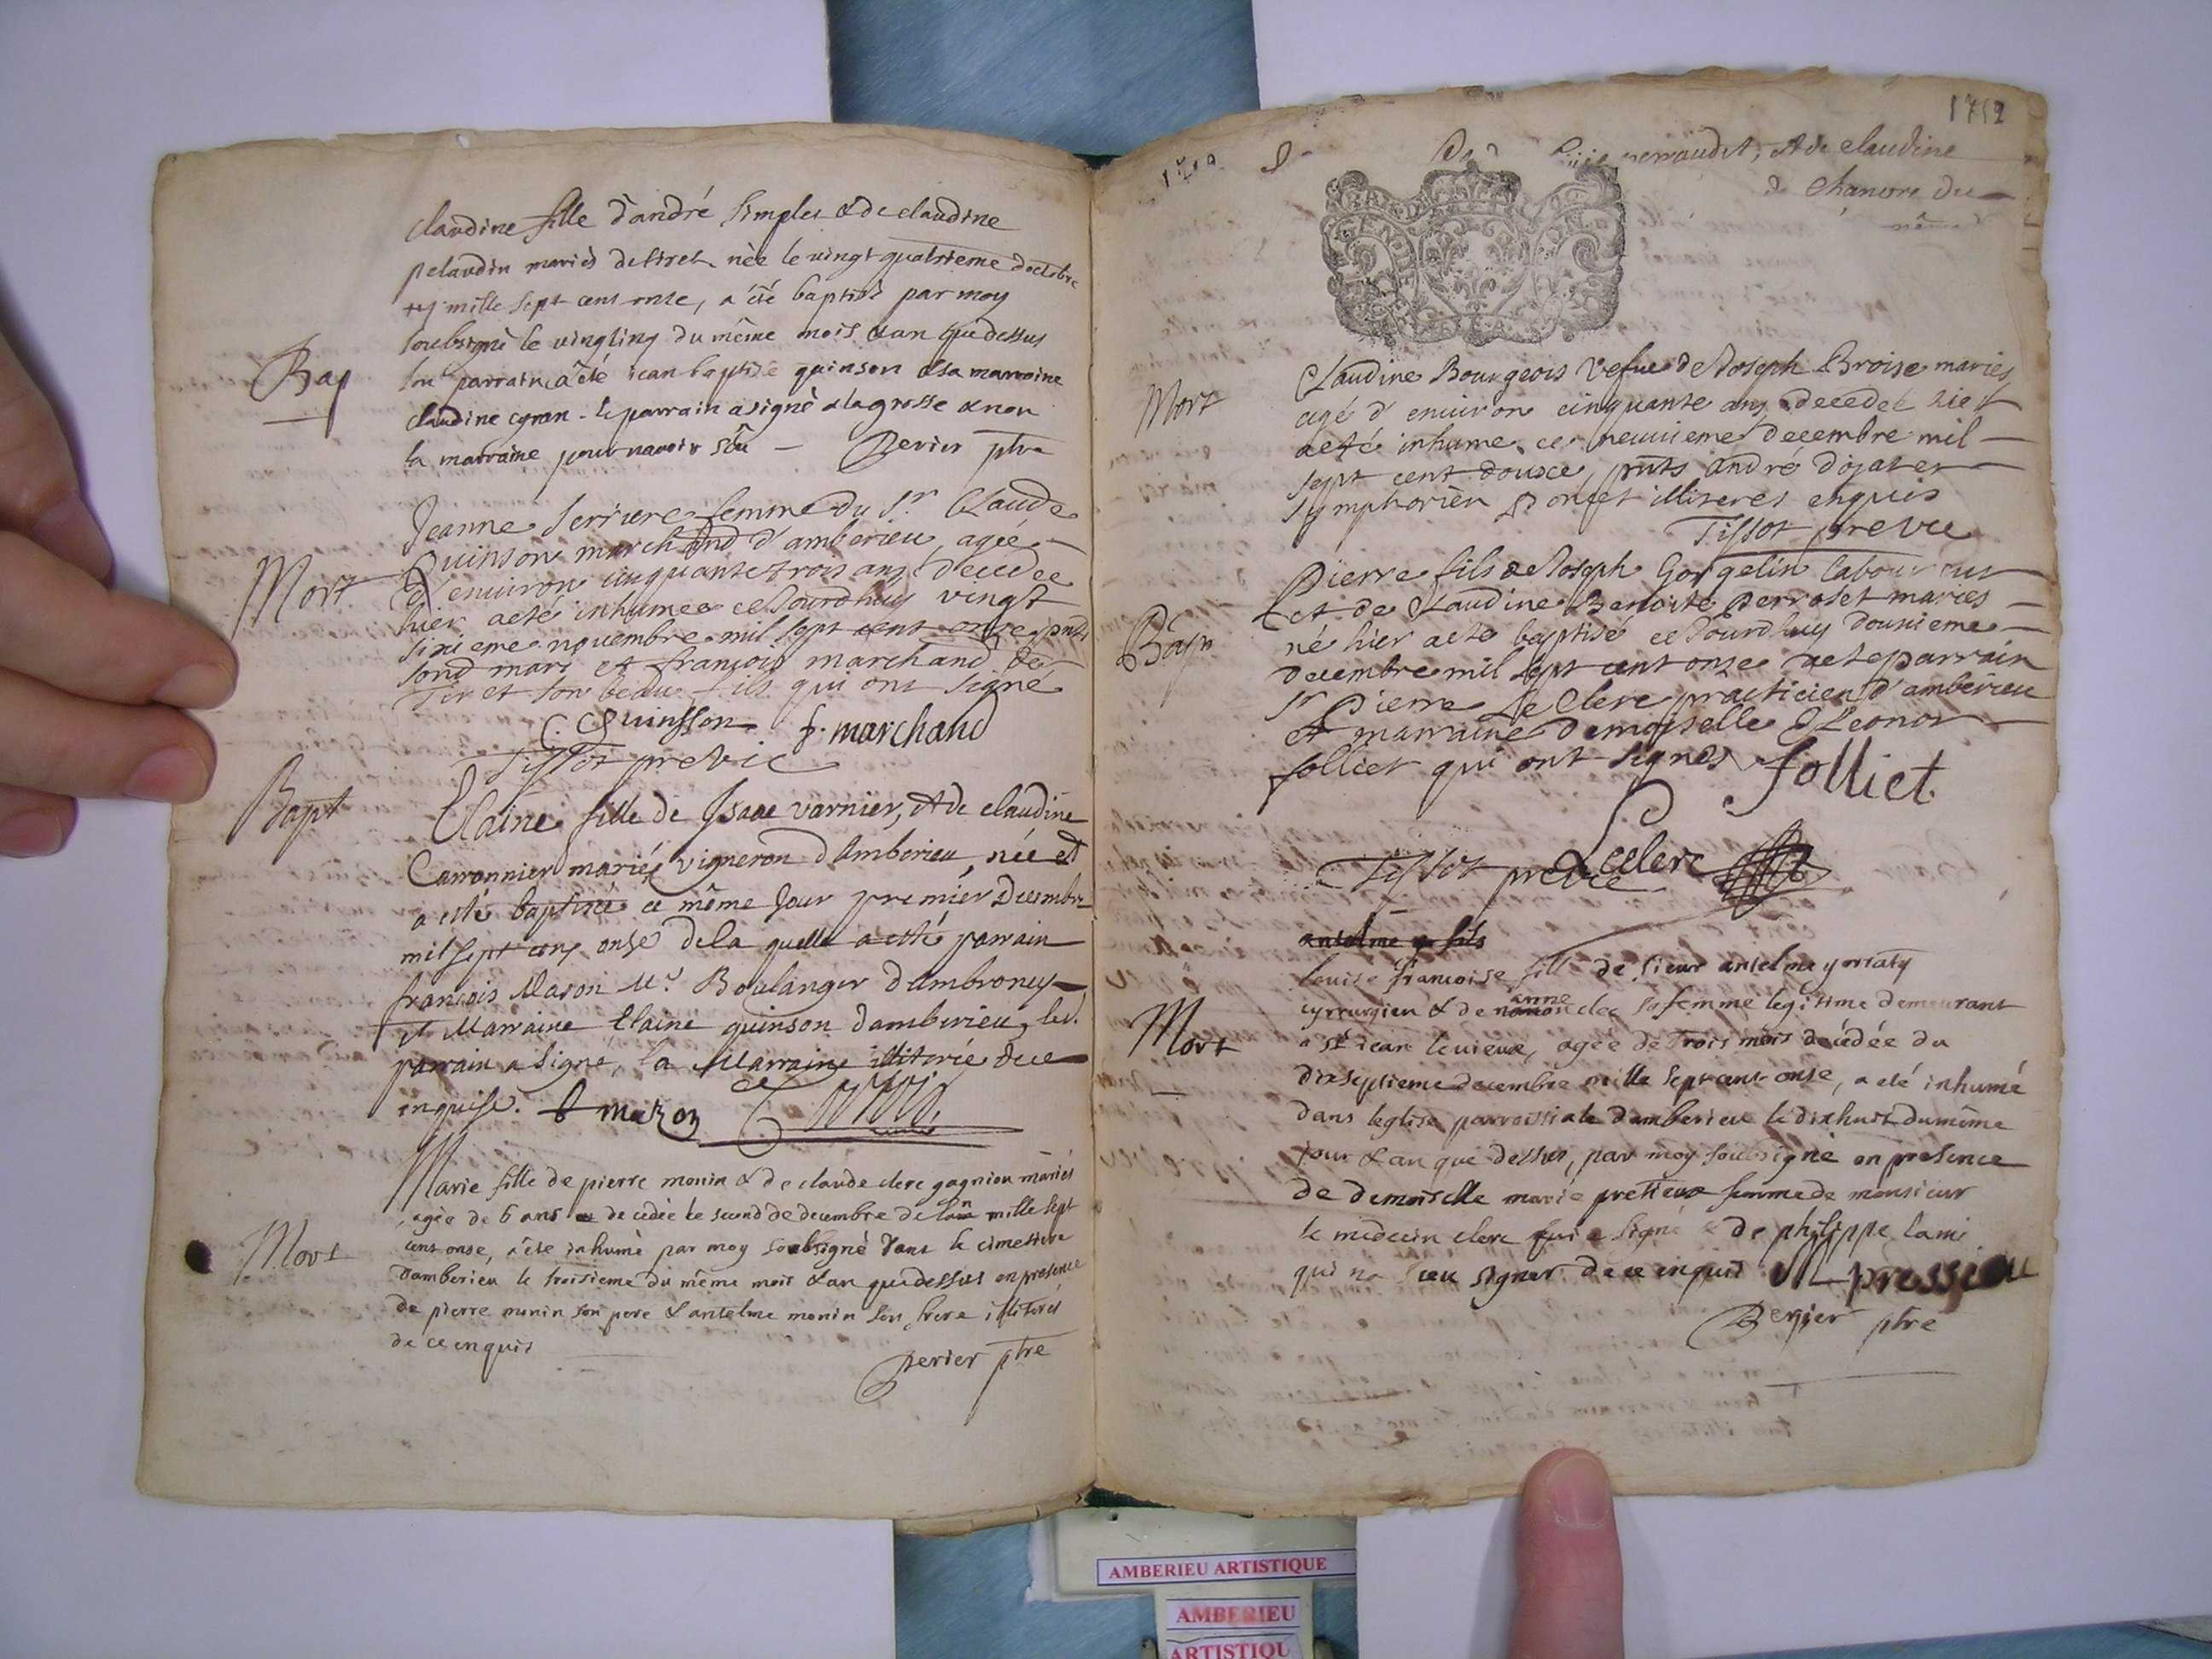 claudine fille d'andré simplex & de claudine
pelaudin mariés de tiret née le vingt quatrieme d'octobre
mille sept cens onse, a été baptisé par moy
soubsigné le vingt cinq du même mois & an que dessus
Bap
son parrain a été jean baptiste quinson & sa marraine
claudine - le parrain a signé a la grosse & non
la marraine pour n'avoir sçu - Perier ptre
Jeanne serriere femme du Sr Claude
Quinson marchand d'amberieu, agée
Mort
d'environ cinquante trois ans decedée
hier aeté inhumée ce Jourdhuy vingt
sixieme novembre mil sept cent onze pnts
sond mari et francois marchand de
Tiret son beau fils qui ont signé
C. Quinsson f. marchand
Tissot previc
Bapt
Elaine fille de Jsaac varnier, & de claudine
Carronnier mariés vigneron d'Amberieu, née et
a esté baptisée ce même Jour premier Decembre
mil sept cens onse de la quelle a esté parrain
francois Mason Me. Boulanger d'Ambronay
et Marraine Elaine quinson d'amberieu, led.
parrain a signé, la Marraine illiterée de ce
enquise. f mazon
Marie fille de pierre monin & de claude clerc gagnion mariés
agée de 6 ans decedée le second de decembre de l'an mille sept
Mort
cens onse, a été inhumé par moy soubsigné dans le cimetiere
d'amberieu le troisieme du même mois & an que dessus en presence
de pierre monin son pere & antelme monin son frere illiterés
de ce enquis
perier ptre
1712
perraudet, & de claudine
de Chanvre du
même
Claudine Bourgeois Vefue de Joseph Broise mariés
Mort
agé d'environ cinquante ans decedee hier
aeté inhume ce neuvieme decembre mil
sept cent douze, pnts andré dojat et
symphorien illiteres enquis
Tissot previc
Pierre fils de Joseph Gorgelin laboureur
et de Claudine Benoite Perroset maries
Bap
né hier aeté baptisé ce Jourdhuy douzieme
decembre mil sept cent onse aete parrain
Sr Pierre Le Clerc practicien d'amberieu
et marraine Demoiselle Eleonor
folliet qui ont signés folliet
Tissot previc Leclerc
antelme fils
louise francoise fille de sieur antelme
cyrrurgien & de anne clec sa femme legitime demeurant
Mort
a St jean le vieux, agée de trois mois decédée du
dixseptieme decembre mille sept cent onse, a eté inhumé
dans leglise parroissiale d'amberieu le dixhuit du même
jour & an que dessus, par moy soubsigné en presence
de demoiselle marie pretieux femme de monsieur
le medecin clerc qui a signé & de philippe lami
qui na sceu signer de ce enquis
Perier ptre
AMBERIEU ARTISTIQUE
AMBERIEU
ARTISTIQU